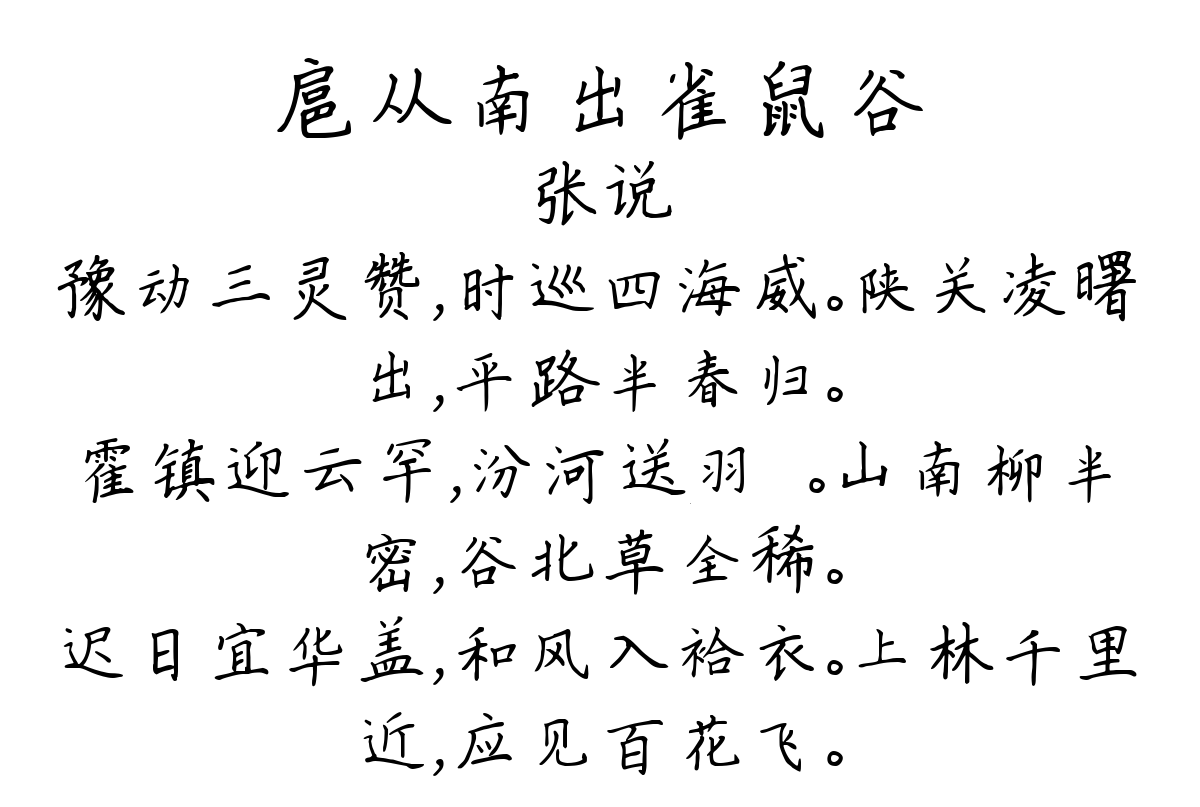 扈从南出雀鼠谷
张说
豫动三灵赞,时巡四海威。陕关凌曙
出,平路半春归。
霍镇迎云罕,汾河送羽 。山南柳半
密,谷北草全稀。
迟日宜华盖,和风入袷衣。上林千里
近,应见百花飞。